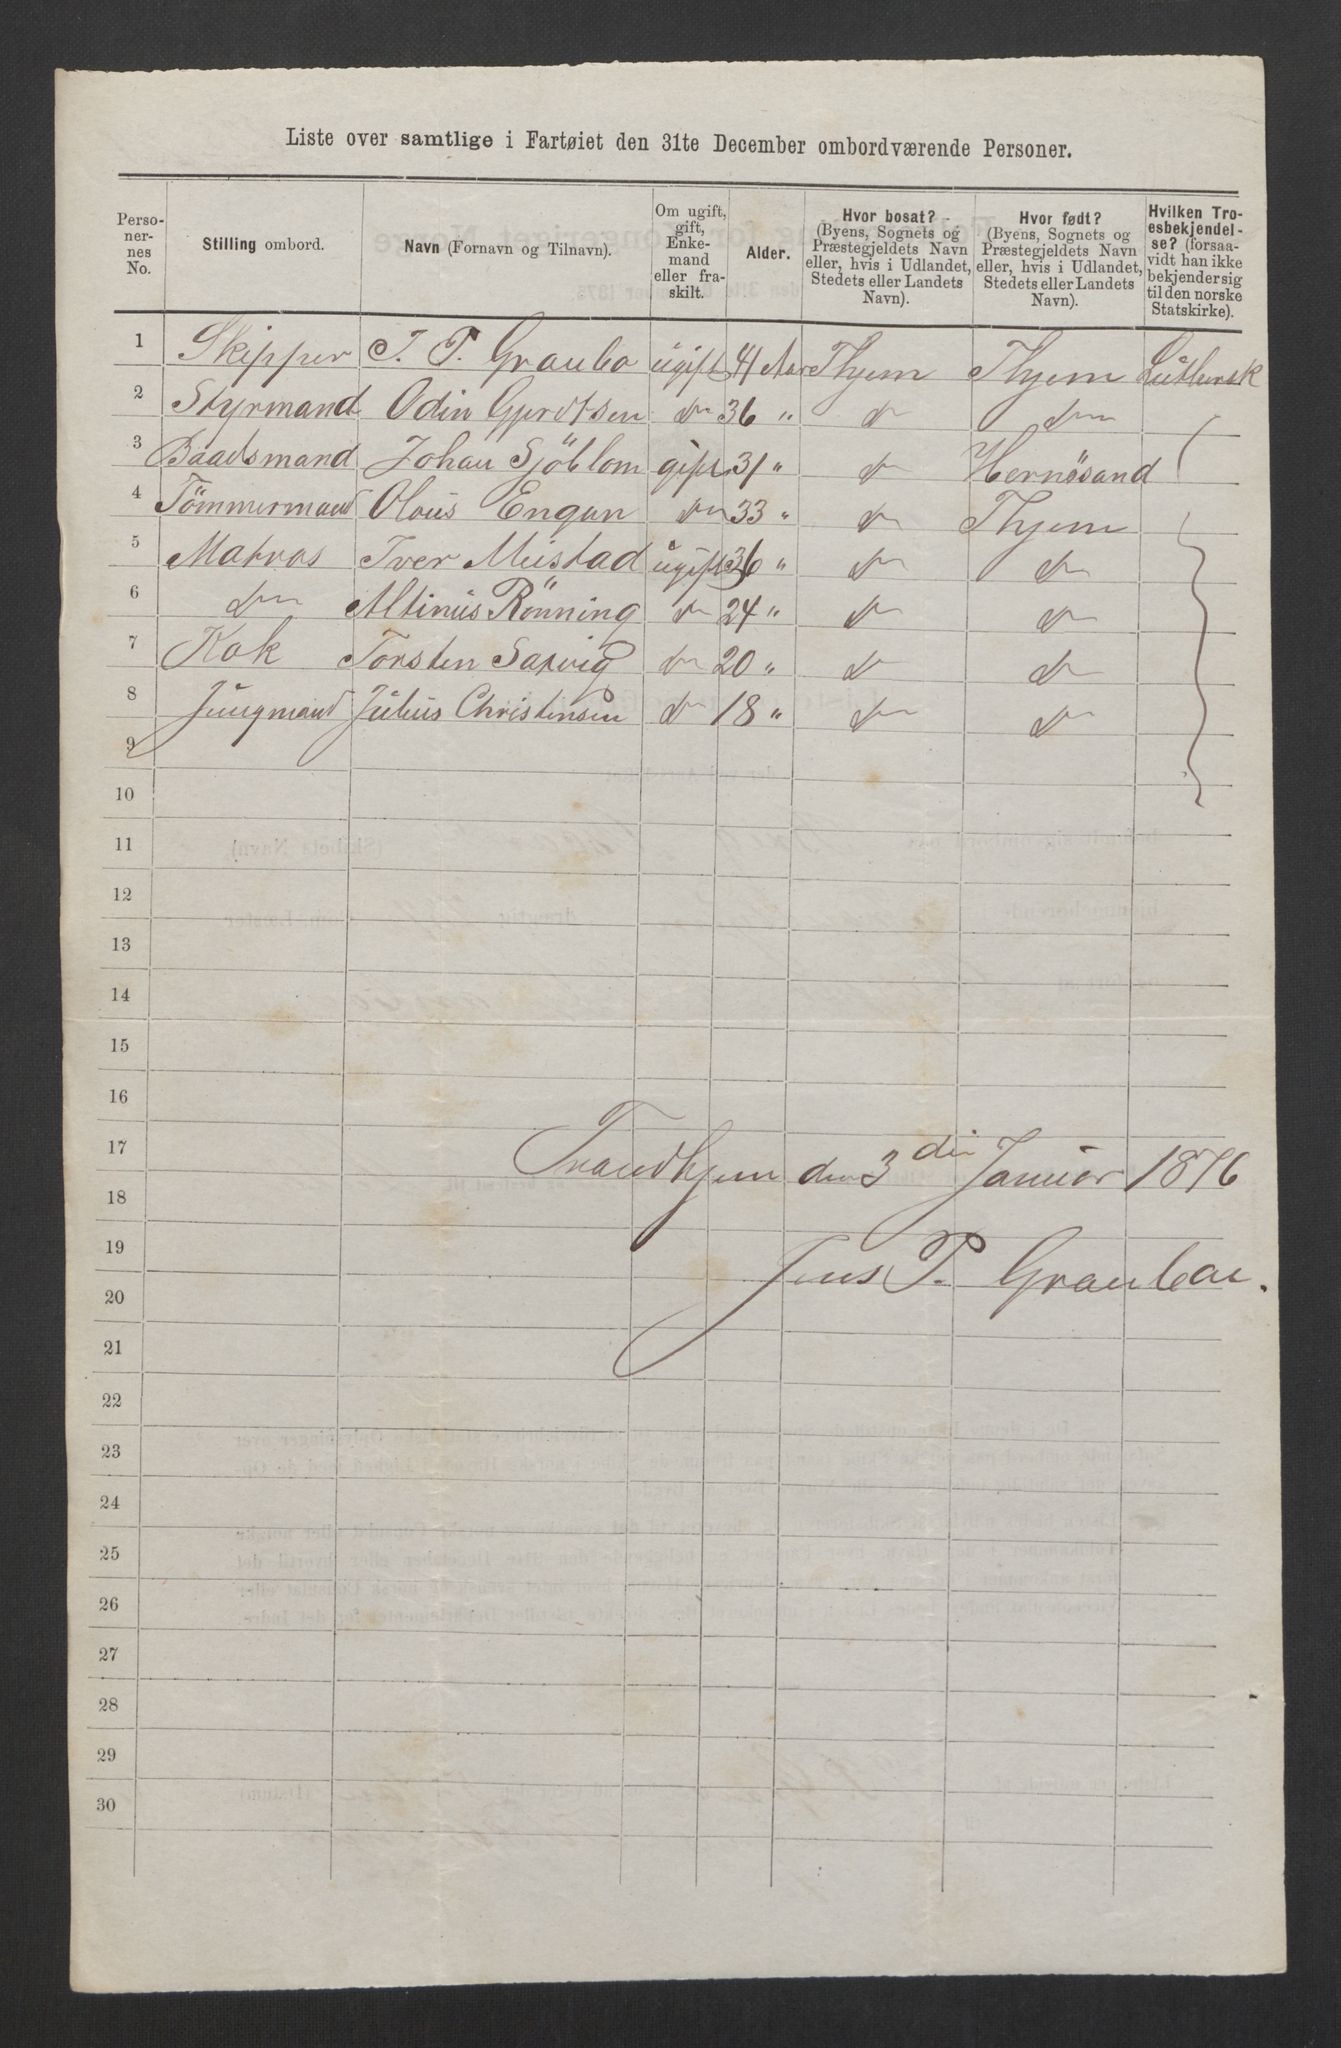 Liste over samtlige i Fartøiet den 31te December ombordværende Personer.
Perso-
ner-
nes
No.
Stilling ombord.
Navn (Fornavn og Tilnavn).
Om ugift,
gift,
Enke-
mand
eller fra-
skilt.
Alder.
Hvor bosat?
(Byens, Sognets og
Præstegjeldets Navn
eller, hvis i Udlandet,
Stedets eller Landets
Navn).
Hvor født?
(Byens, Sognets og
Præstegjeldets Navn
eller, hvis i Udlandet,
Stedets eller Landets
Navn).
Hvilken Tro-
esbekjendel-
se? (forsaa-
vidt han ikke
bekjender sig
til den norske
Statskirke).
1 Skipper J. P. Graubo ugift 41 Aar Thjem Thjem Luthersk
2 Styrmand Odin Gjertsen do 36 " do do
3 Baadsmand Johan Sjöblom gift 31 " do Hernösand
4 Tömmermand Olaus Engan do 33 " do Thjem
5 Matros Iver Mustad ugift 36 " do do
6 do Altinus Rönning do 24 " do do
7 Kok Torsten Saxvig do 20 " do do
8 Jungmand Julius Christensen do 18 " do do
9
10
11
12
13
14
15
16
17
Trondhjem den 3die Januar 1876
18
19
Jens P. Graubar.
20
21
22
23
24
25
26
27
28
29
30